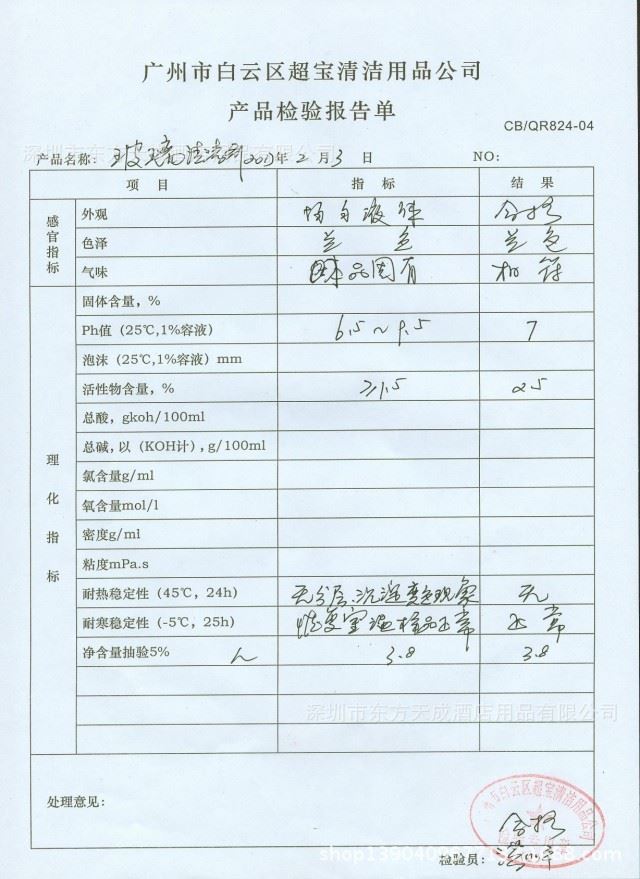 广州市白云区超宝清洁用品公司
产品检验报告单
CB/QR824-04
深圳市东方天成酒店用品有限公司
产品名称: 玻璃清洁剂 年 2 月 3 日 NO:
项 目 指 标 结 果
感官指标
外观 均匀液体 合格
色泽 兰 色 兰色
气味 品固有 相符
理化指标
固体含量，%
Ph值（25℃,1%容液） 6.5～9.5 7
泡沫（25℃,1%容液）mm
活性物含量，% ≥1.5 25
总酸，gkoh/100ml
总碱，以（KOH计）, g/100ml
氯含量g/ml
氧含量mol/l
密度g/ml
粘度mPa.s
耐热稳定性（45℃，24h） 无分层、沉淀变色现象 无
耐寒稳定性（-5℃，25h） 恢复室温样品正常 正常
净含量抽验5% 3.8 3.8
深圳市东方天成酒店用品有限公司
处理意见:
广州市白云区超宝清洁用品公司
合格
检验员: